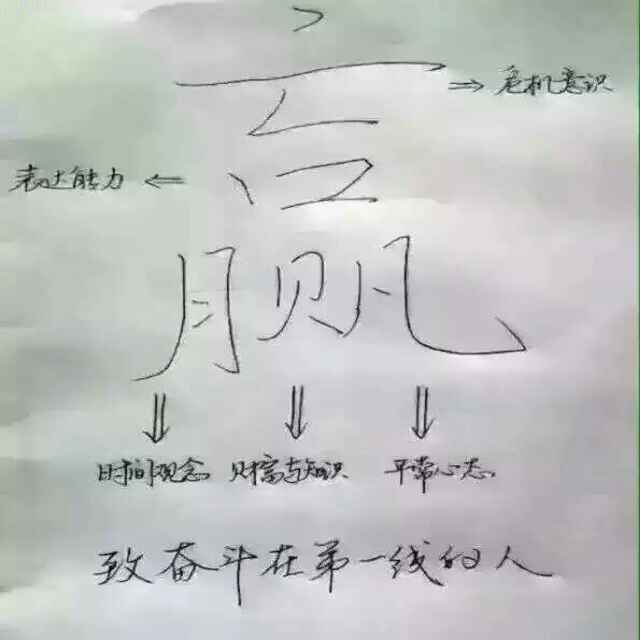 赢
危机意识
表达能力
时间观念 财富与知识 平常心态
致奋斗在第一线的人